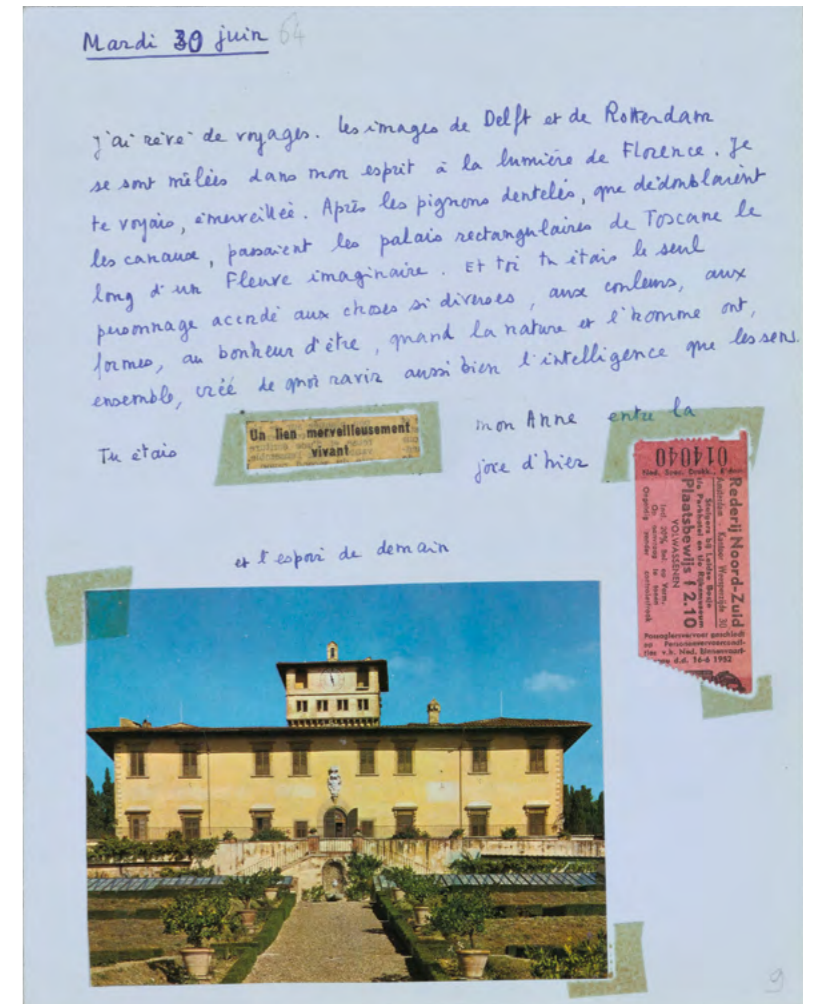 Mardi 30 juin 64
J'ai rêvé de voyages. Les images de Delft et de Rotterdam
se sont mêlées dans mon esprit à la lumière de Florence. Je
te voyais, émerveillée. Après les pignons dentelés, que dédoublaient
les canaux, passaient les palais rectangulaires de Toscane le
long d'un Fleuve imaginaire. Et toi tu étais le seul
personnage accordé aux choses si diverses, aux couleurs, aux
formes, au bonheur d'être, quand la nature et l'homme ont,
ensemble, créé de quoi ravir aussi bien l'intelligence que les sens.
Tu étais
Un lien merveilleusement
vivant
mon Anne entre la
joie d'hier
et l'espoir de demain
014040
Rederij Noord-Zuid
Amsterdam - Kantoor Weesperzijde 30
Steigers bij Leidse Bosje
t/o Parkhotel en t/o Rijksmuseum
Plaatsbewijs f 2.10
VOLWASSENEN
Ongeldig zonder controlestrook
Passagiersvervoer geschiedt
d.d. 16-6 1952
9